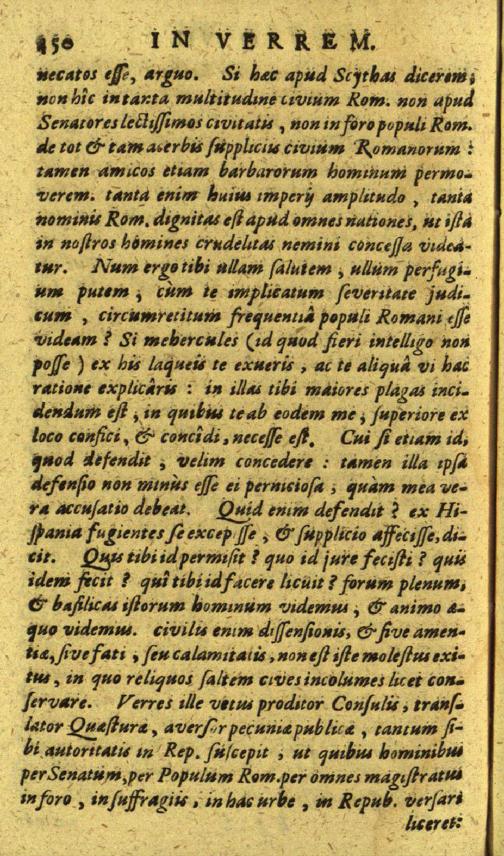 450 IN VERREM.
necatos eſſe, arguo. Si hæc apud Scythas dicerem;
non hîc in tanta multitudine civium Rom. non apud
Senatores lectiſſimos civitatis, non in foro populi Rom.
de tot & tam acerbis ſuppliciis civium Romanorum:
tamen amicos etiam barbarorum hominum permo-
verem. tanta enim huius imperij amplitudo, tanta
nominis Rom. dignitas eſt apud omnes nationes, ut iſta
in noſtros homines crudelitas nemini conceſſa videa-
tur. Num ergo tibi ullam ſalutem, ullum perfugi-
um putem, cùm te implicatum ſeveritate judi-
cum, circumretitum frequentiâ populi Romani eſſe
videam? Si mehercules (id quod fieri intelligo non
poſſe) ex his laqueis te exueris, ac te aliquâ vi hac
ratione explicâris: in illas tibi maiores plagas inci-
dendum eſt, in quibus te ab eodem me, ſuperiore ex
loco confici, & concîdi, neceſſe eſt. Cui ſi etiam id,
quod defendit, velim concedere: tamen illa ipſa
defenſio non minùs eſſe ei pernicioſa, quàm mea ve-
ra accuſatio debeat. Quid enim defendit? ex Hi-
ſpania fugientes ſe excepiſſe, & ſupplicio affeciſſe, di-
cit. Quis tibi id permiſit? quo id jure feciſti? quis
idem fecit? quî tibi id facere licuit? forum plenum,
& baſilicas iſtorum hominum videmus, & animo æ-
quo videmus. civilis enim diſſenſionis, & ſive amen-
tiæ, ſive fati, ſeu calamitatis, non eſt iſte moleſtus exi-
tus, in quo reliquos ſaltem cives incolumes licet con-
ſervare. Verres ille vetus proditor Conſulis, tranſ-
lator Quæſturæ, averſor pecuniæ publicæ, tantum ſi-
bi autoritatis in Rep. ſuſcepit, ut quibus hominibus
per Senatum, per Populum Rom. per omnes magiſtratus
in foro, in ſuffragiis, in hac urbe, in Repub. verſari
liceret: